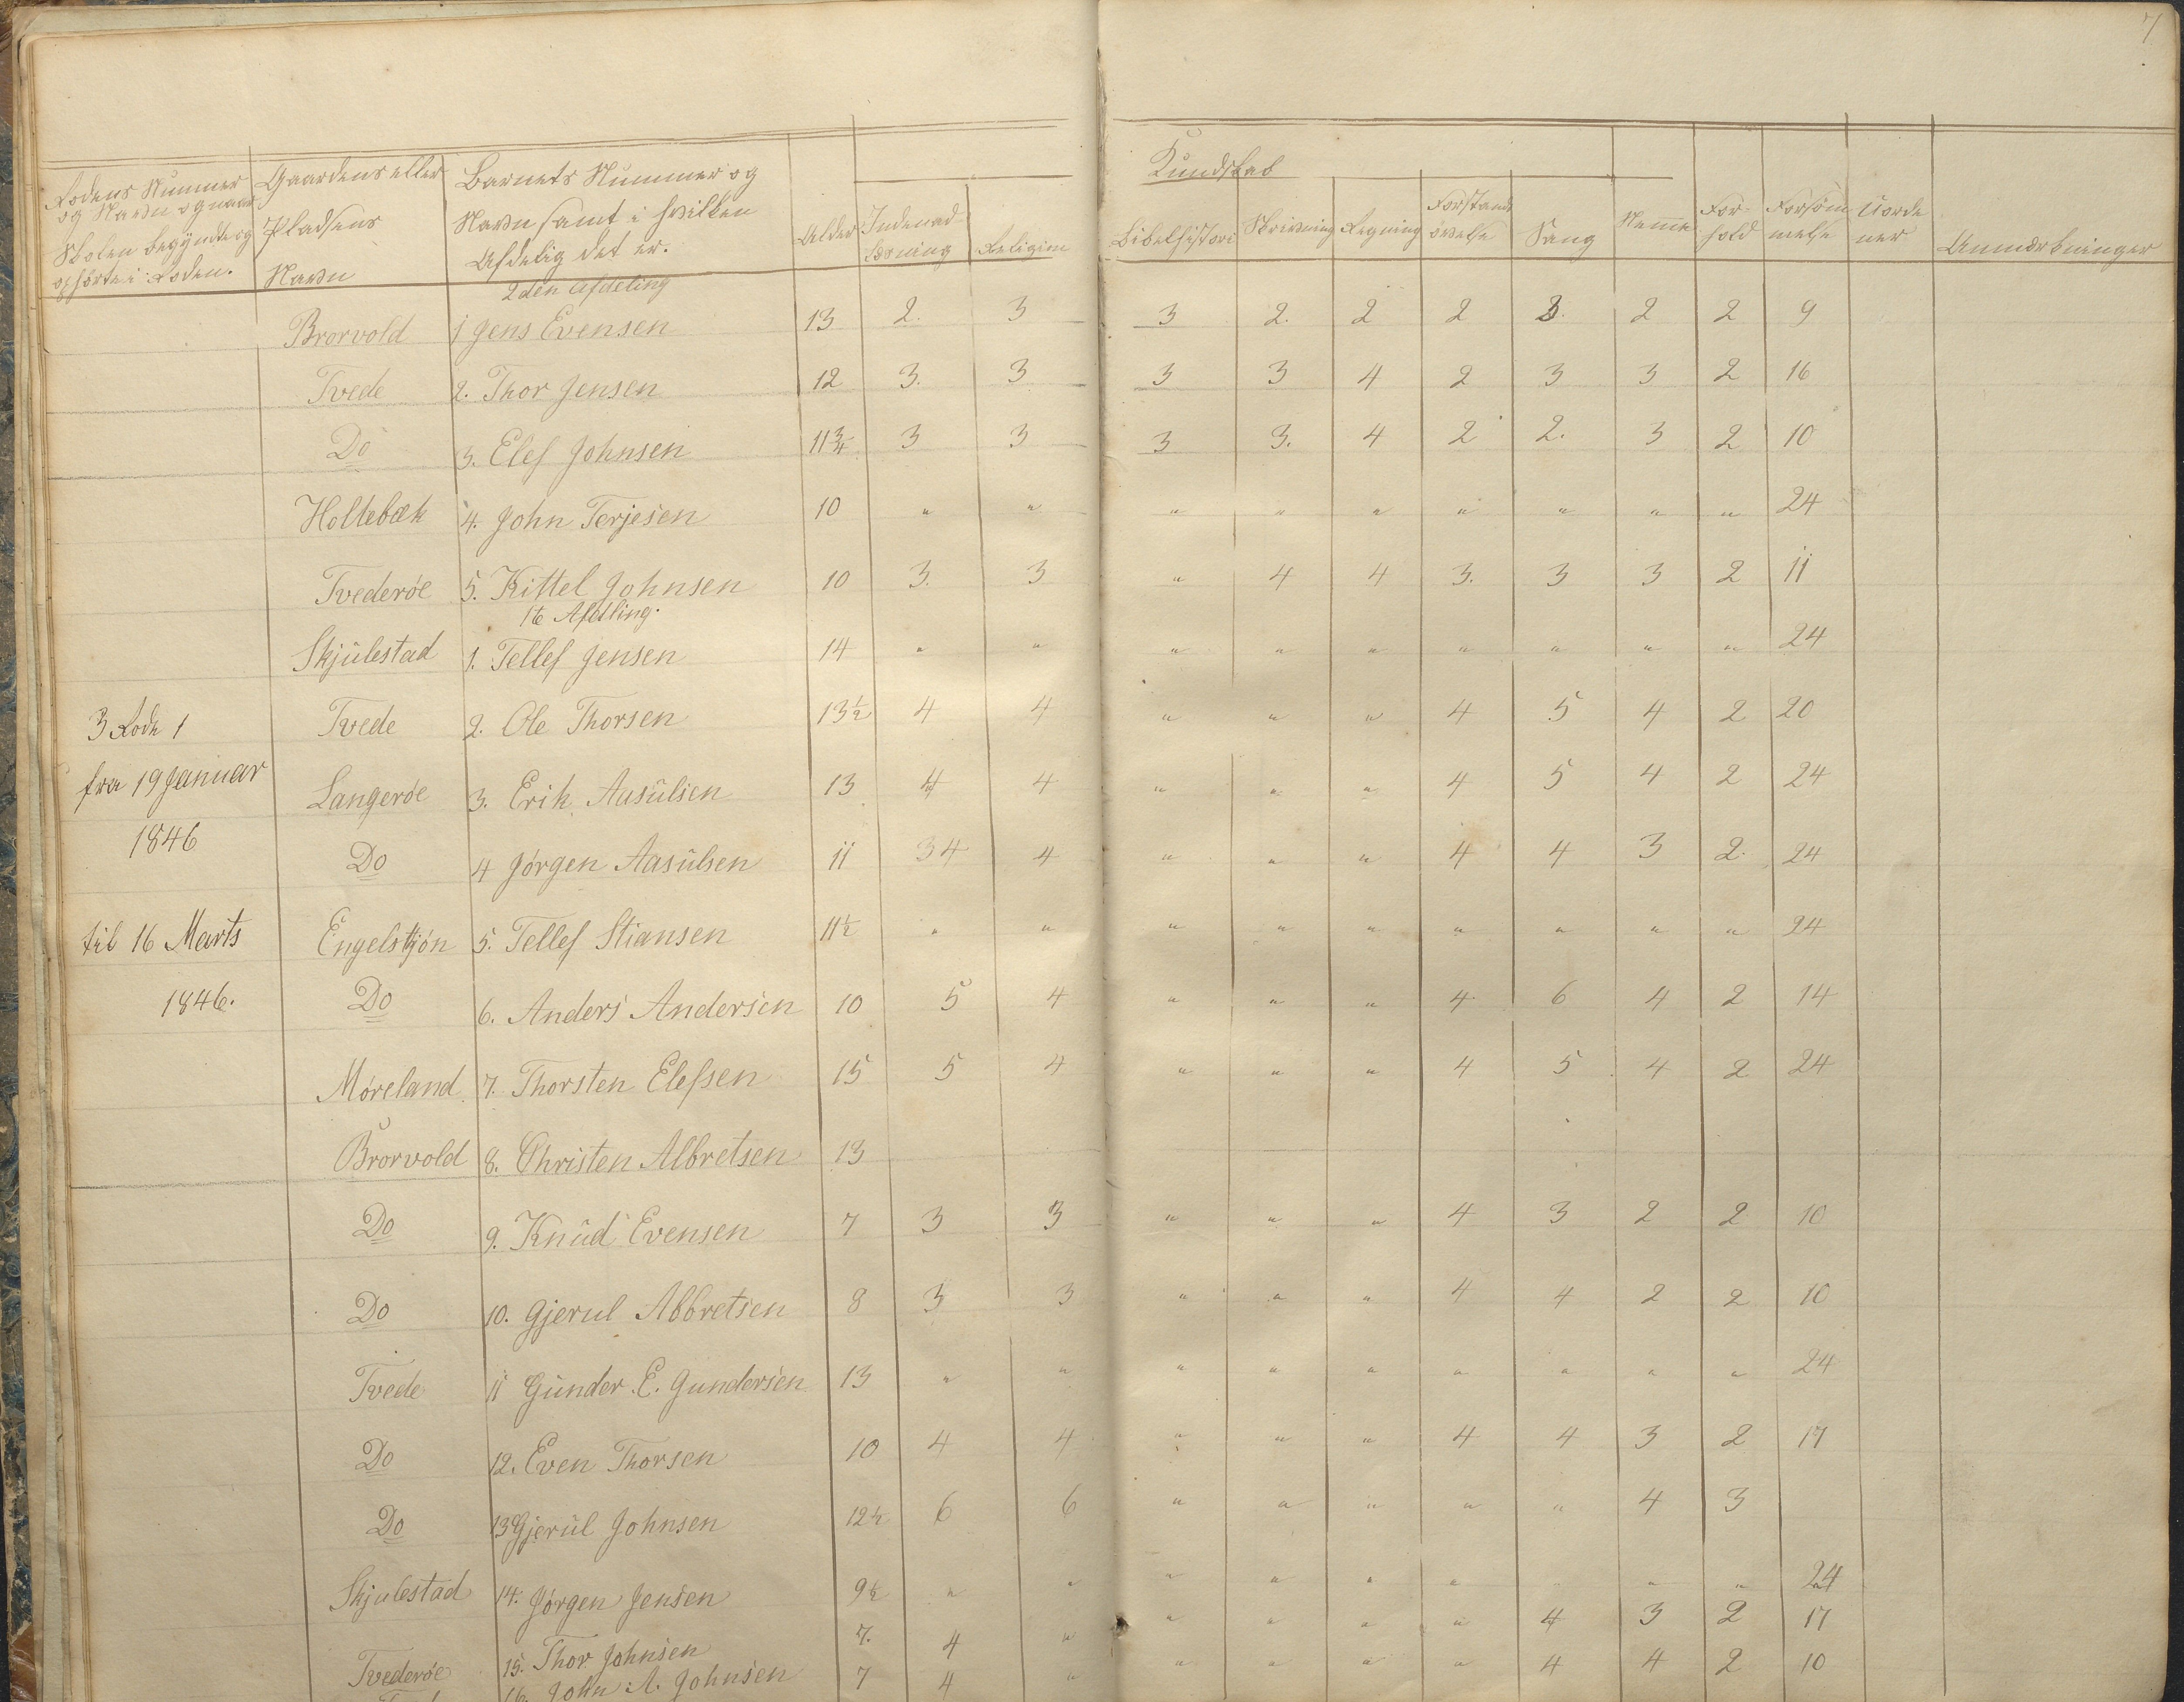 7
Rodens Nummer og Navn og naar Skolen begyndte og ophørte i Roden.
Gaardens eller Pladsens Navn
Barnets Nummer og Navn samt i hvilken Afdelig det er.
Alder
Kundskab
Indenad-læsning Religion Bibelhistori Skrivning Regning Forstands øvelse Sang
Nemme For-hold Forsøm-melse Uorde ner Anmærkninger
2den Afdeling
Brorvold 1 Jens Evensen 13 2. 3 3 2. 2 2 3. 2 2 9
Tvede 2. Thor Jensen 12 3. 3 3 3 4 2 3 3 2 16
Do 3. Elef Johnsen 11 3/4 3 3 3 3. 4 2 2. 3 2 10
Holtebæk 4. John Terjesen 10 " " " " " " " " " 24
Tvederøe 5. Kittel Johnsen 10 3. 3 " 4 4 3. 3 3 2 11
1te Afdling.
Skjulestad 1. Tellef Jensen 14 " " " " " " " " " 24
3 Rode 1 Tvede 2. Ole Thorsen 13 1/2 4 4 " " " 4 5 4 2 20
fra 19 Januar Langerøe 3. Erik Aasulsen 13 4 4 " " " 4 5 4 2 24
1846 Do 4 Jørgen Aasulsen 11 34 4 " " " 4 4 3 2. 24
til 16 Marts Engelstjøn 5. Tellef Stiansen 11 1/2 " " " " " " " " " 24
1846. Do 6. Anders Andersen 10 5 4 " " " 4 6 4 2 14
Møreland 7. Thorsten Elefsen 15 5 4 " " " 4 5 4 2 24
Brorvold 8. Christen Albretsen 13
Do 9. Knud Evensen 7 3 3 " " " 4 3 2 2 10
Do 10. Gjerul Abbretsen 8 3 3 " " " 4 4 2 2 10
Tvede 11 Gunder E. Gundersen 13 " " " " " " " " " 24
Do 12. Even Thorsen 10 4 4 " " " 4 4 3 2 17
Do 13 Gjerul Johnsen 12 1/2 6 6 " " " " " 4 3
Skjulestad 14. Jørgen Jensen 9 1/2 " " " " " " " " 24
Tvederøe 15. Thor Johnsen 7. 4 " " " " " 4 3 2 17
16. John A. Johnsen 7 4 " " " " " 4 4 2 10